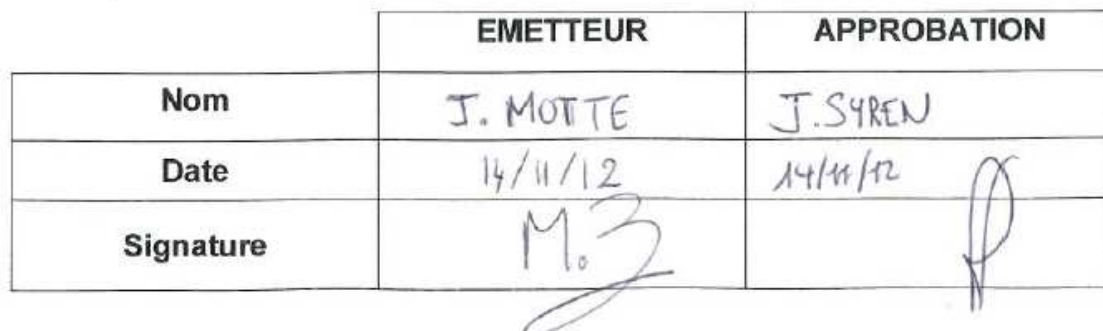 EMETTEUR APPROBATION
Nom J. MOTTE J. SYREN
Date 14/11/12 14/11/12
Signature